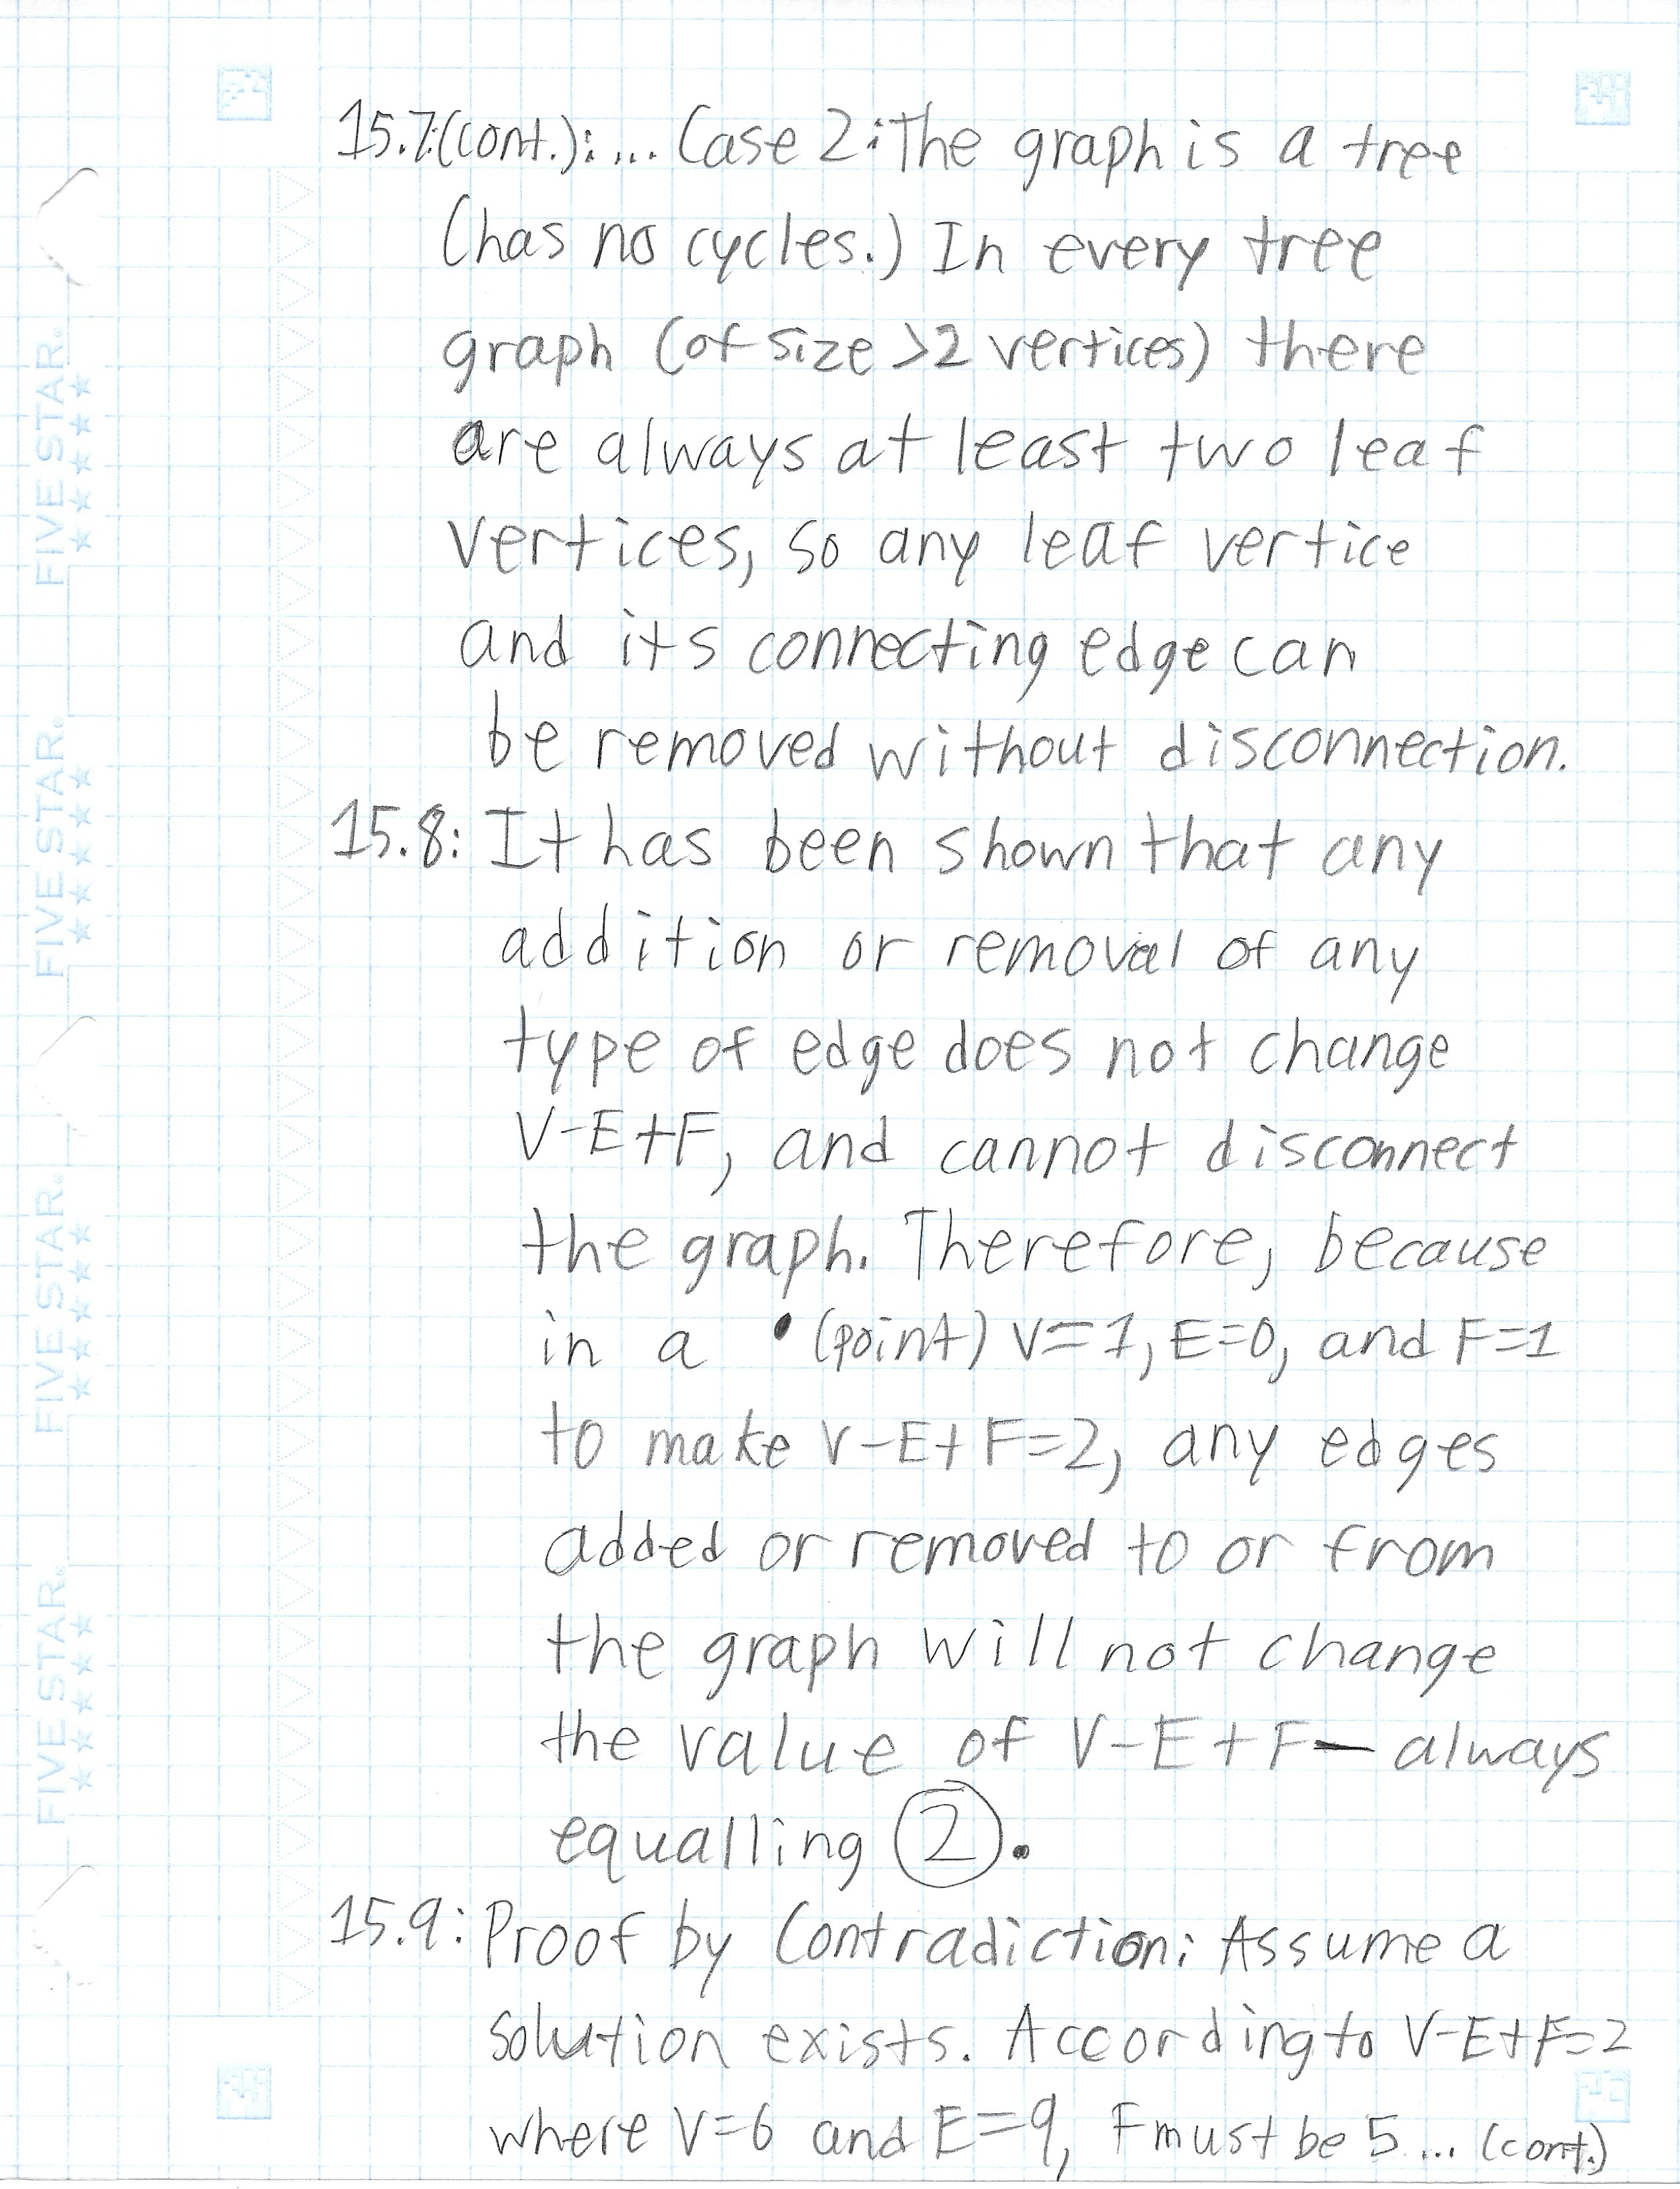 15.7(cont.):... Case 2: The graph is a tree
(has no cycles.) In every tree
graph (of size >2 vertices) there
are always at least two leaf
vertices, so any leaf vertice
and its connecting edge can
be removed without disconnection.
15.8: It has been shown that any
addition or removal of any
type of edge does not change
V-E+F, and cannot disconnect
the graph. Therefore, because
in a • (point) V=1, E=0, and F=1
to make V-E+F=2, any edges
added or removed to or from
the graph will not change
the value of V-E+F — always
equalling 2.
15.9: Proof by Contradiction: Assume a
solution exists. According to V-E+F=2
where V=6 and E=9, F must be 5... (cont.)
FIVE STAR.
★★★★
FIVE STAR.
★★★★
FIVE STAR.
★★★★
FIVE STAR.
★★★★